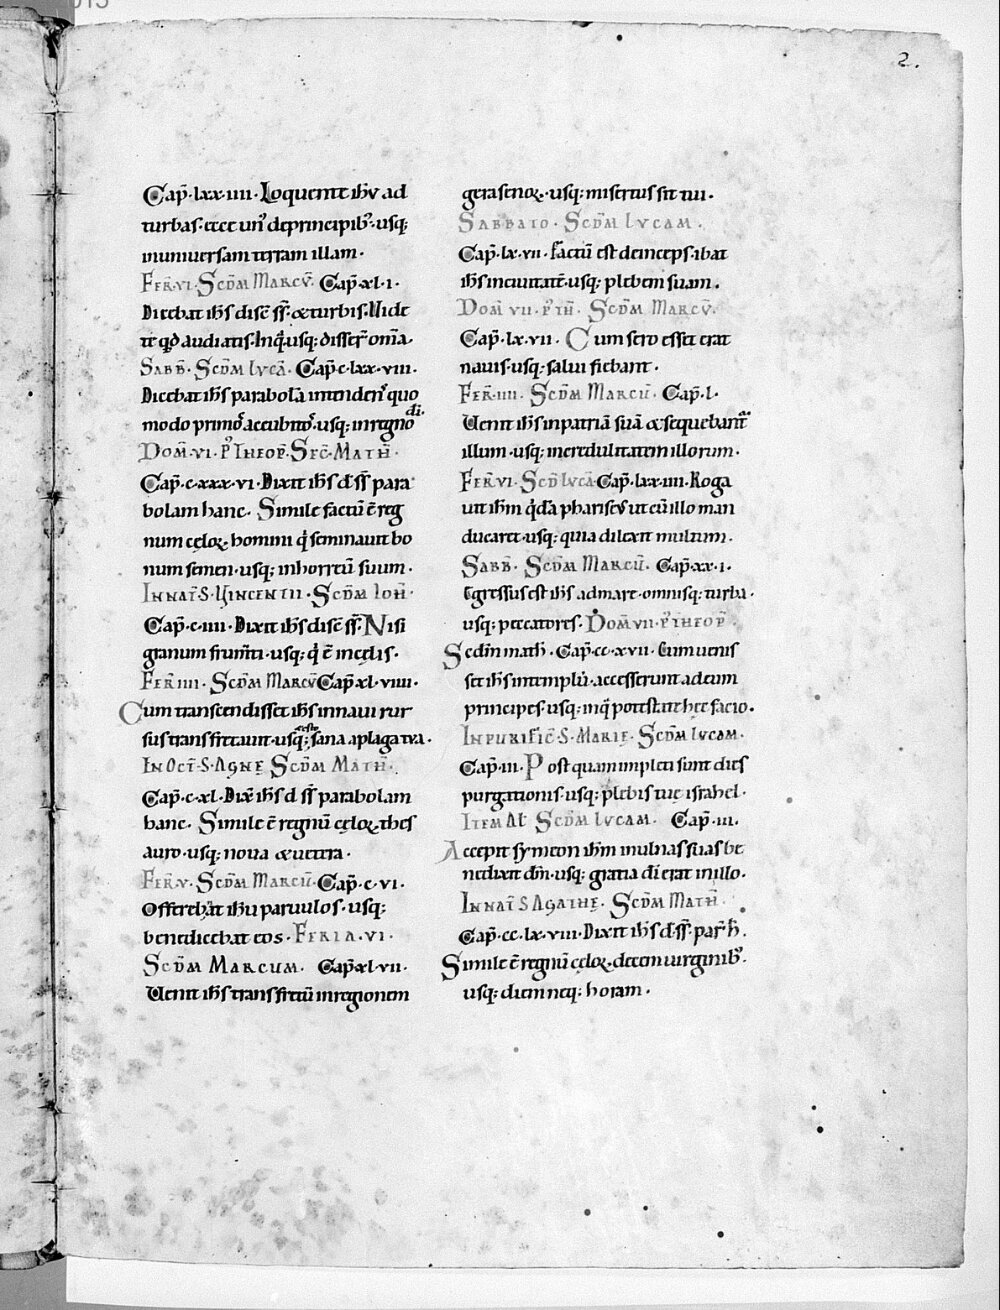 2.
Cap̄·lxx·iiii·Loquente ih̄u ad
turbas·ecce un᷒ de principib᷒·usq;
in universam terram illam·
FER̄·VI·SCD̄M MARCV̄·Cap̄·xl·i·
Dicebat ih̄s disc̄ ss̄·& turbis·Uide
te qd̄ audiatis·Inq̄ usq; disser̄ om̄a·
SABB̄·SCD̄M LVCĀ·Cap̄·c·lxx·viii·
Dicebat ih̄s parabolā intendens quo
modo primos accubitos·usq; in regno
di·
DOM̄·VI·P᷒ THEOP̄·SEC̄·MATH̄·
Cap̄·c·xxx·vi·Dixit ih̄s d̄ ss̄ para
bolam hanc·Simile factū ē reg
num cęloꝝ homini q̇ seminavit bo
num semen·usq; in horreū suum·
IN NAT̄·S·VINCENTII·SCD̄M IOH̄·
Cap̄·c·iiii·Dixit ih̄s disc̄ ss̄·Nisi
granum frum̄ti·usq; q̇ ē in cęlis·
FER̄ IIII·SCD̄M MARCV̄ Cap̄ xl·viiii·
Cum transcendisset ih̄s in navi rur
sus trans fretum·usq; esto sana a plaga tua·
IN OCT̄·S·AGNĘ SCD̄M MATH̄·
Cap̄·c·xl·Dix̄ ih̄s d ss̄ parabolam
hanc·Simile ē regnū cęloꝝ·thes
auro·usq; nova & vetera·
FER̄·V·SCD̄M MARCŪ·Cap̄·c·vi·
Offereb̄at ih̄u parvulos·usq;
benedicebat eos·FERIA·VI·
SCD̄M MARCUM·Cap̄ xl·vii·
Venit ih̄s trans fretū in regionem
gerasenoꝝ·usq; misertus sit tui·
SABBATO·SCD̄M LVCAM·
Cap̄·lx·vii·factū est deinceps·ibat
ih̄s in civitatē·usq; plebem suam·
DOM̄ VII·P᷒ TH̄·SCD̄M MARCV̄·
Cap̄·lx·vii·Cum sero esset erat
navis·usq; salvi fiebant·
FER̄·IIII·SCD̄M MARCŪ·Cap̄·l·
Venit ih̄s in patriā suā & sequebant̄
illum·usq; incredulitatem illorum·
FER̄·VI·SCD̄ LVCĀ·Cap̄·lxx·iiii·Roga
vit ih̄m q̇dā phariseus ut cū illo man
ducaret·usq; quia dilexit multum·
SABB̄·SCD̄M MARCŪ·Cap̄·xx·i·
Egressus est ih̄s ad mare·omnisq; turba·
usq; peccatores·DOM̄ VII·P᷒ THEOP̄·
Sedm̄ math̄·Cap̄·cc·xvii·Cum venis
set ih̄s in templū·accesserunt ad eum
principes·usq; in q̇ potestate hec facio·
IN PURIFIC̄·S·MARIĘ·SCD̄M LVCAM·
Cap̄·iii·Post quam impleti sunt dies
purgationis·usq; plebis tue israhel·
ITEM AL̄ SCD̄M LVCAM·Cap̄·iii·
Accepit symeon ih̄m in ulnas suas be
nedixit dm̄·usq; gratia di erat in illo·
IN NAT̄ S AGATHĘ·SCD̄M MATH̄·
Cap̄·cc·lx·viii·Dixit ih̄s d̄ ss̄·par̄ h̄·
Simile ē regnū cęloꝝ·decem virginib᷒·
usq; diem neq; horam·